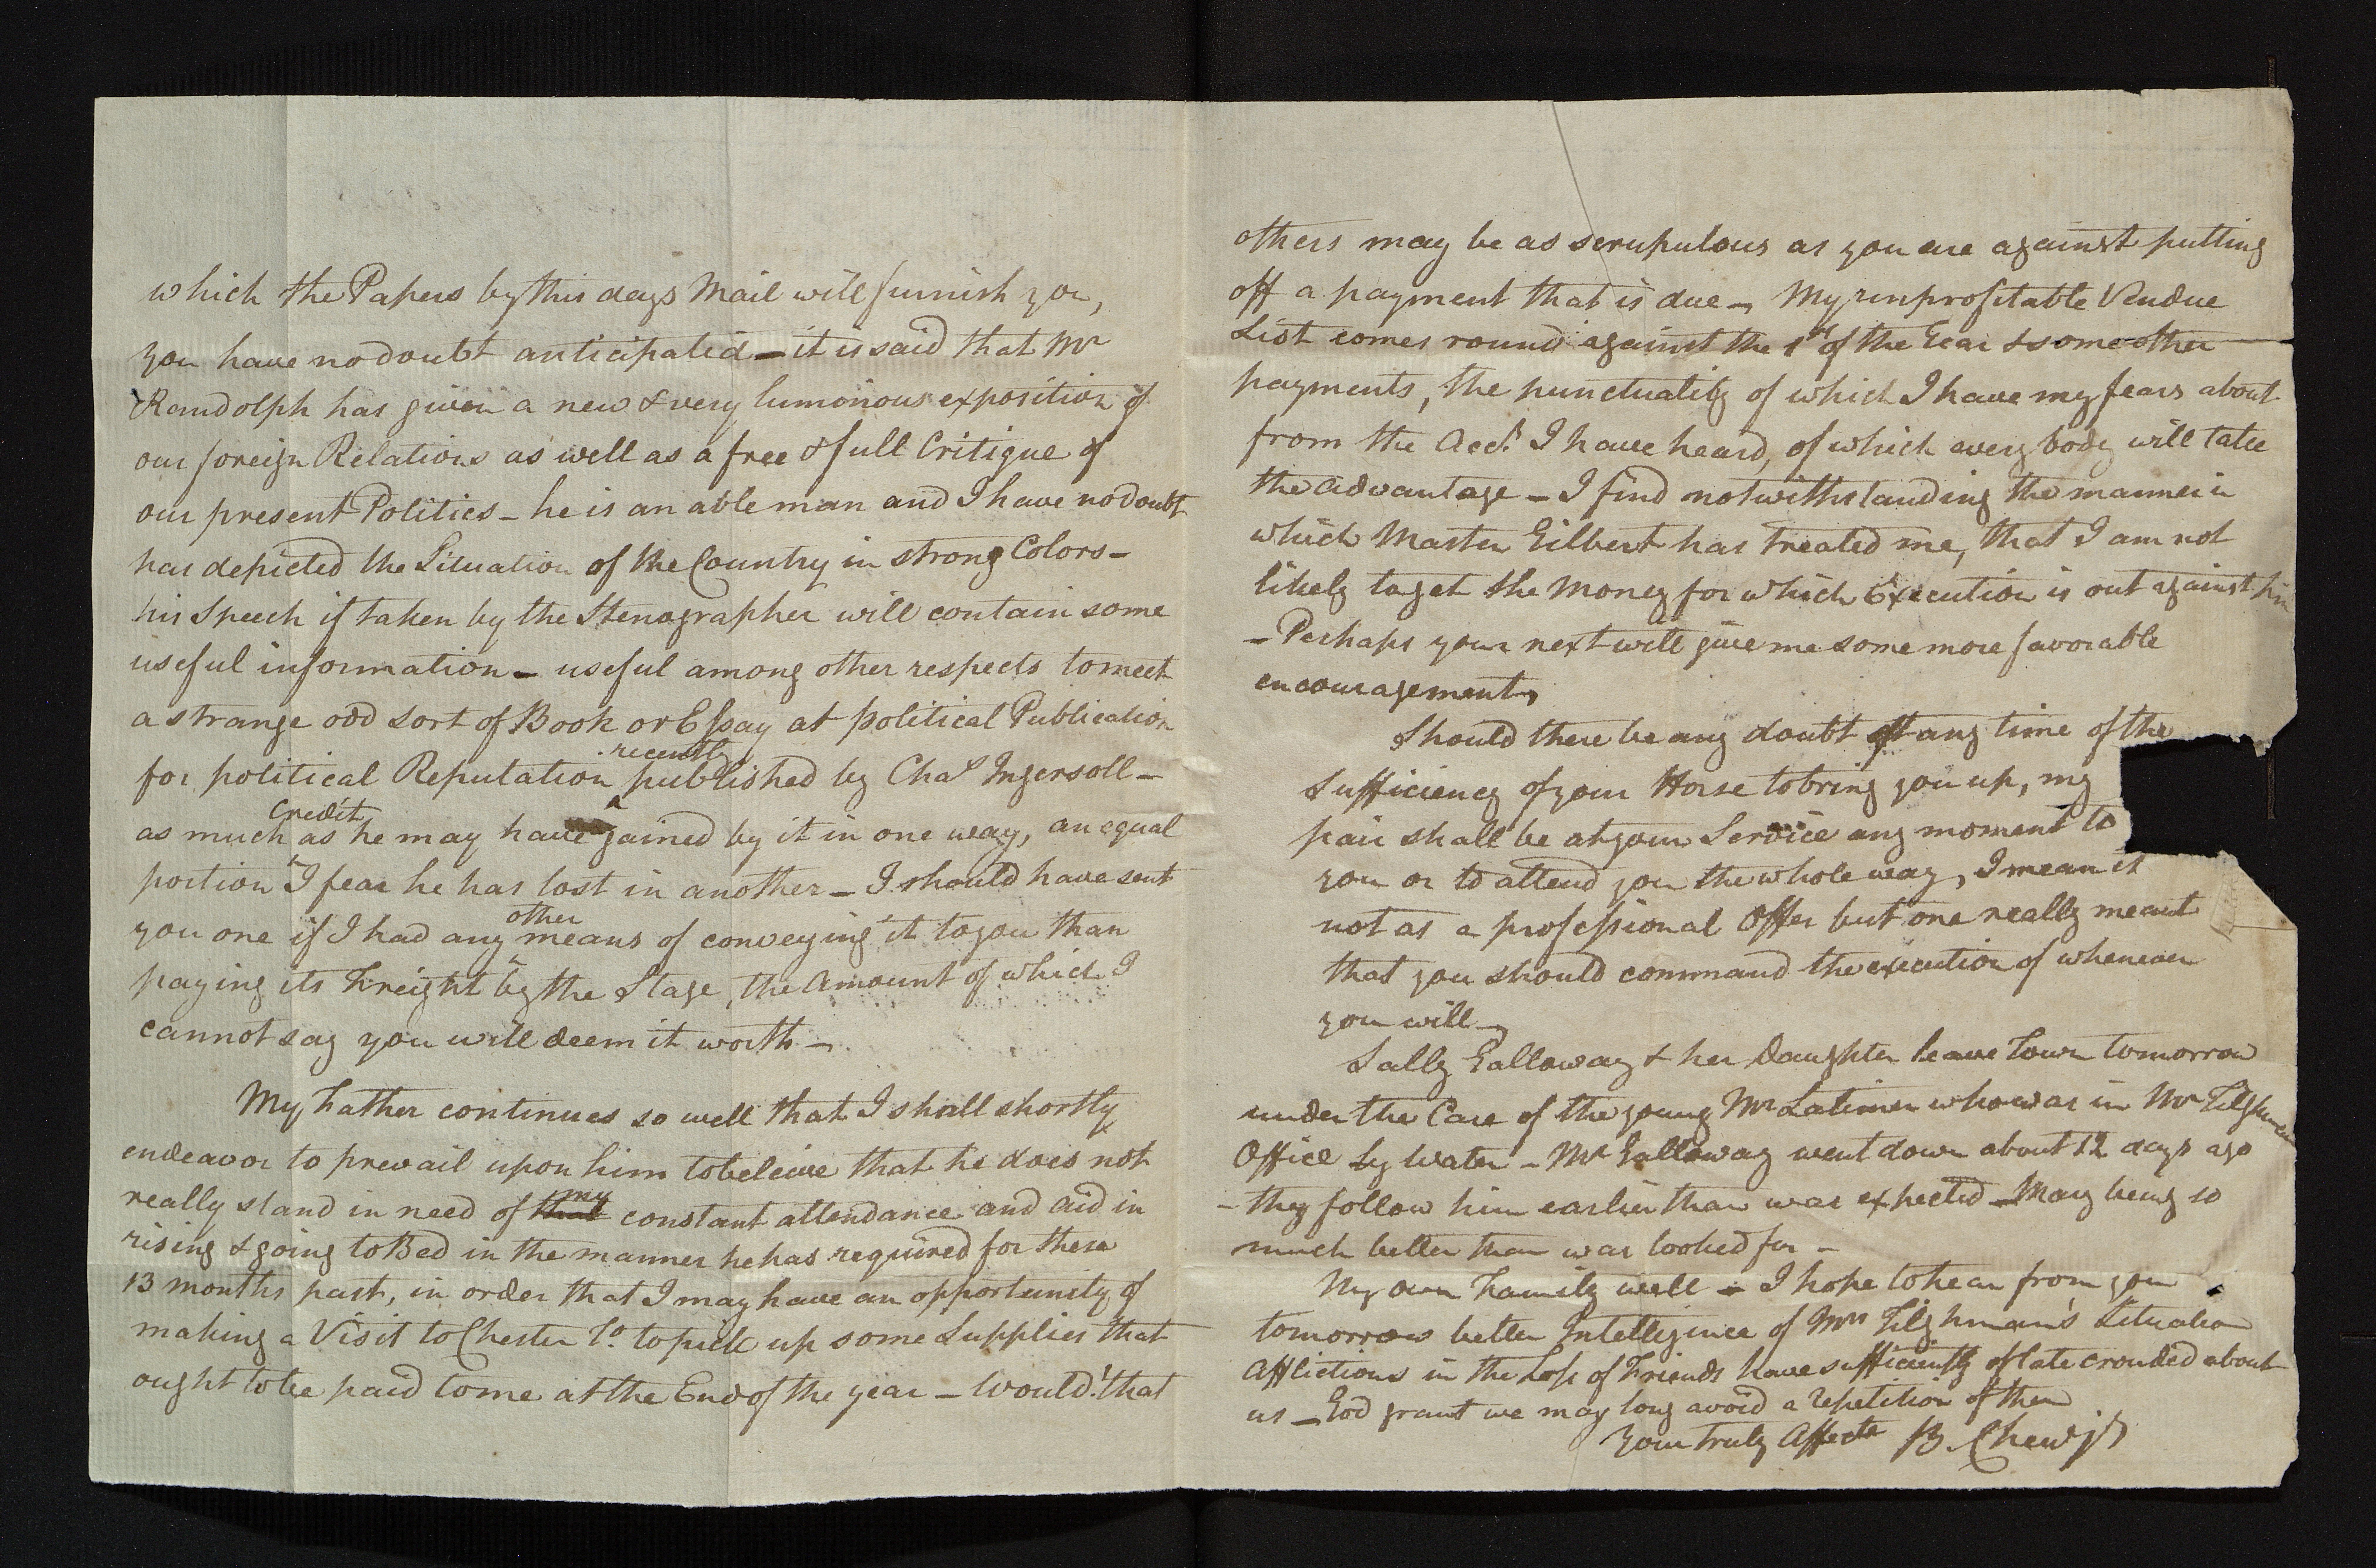 which the Papers by this days Mail will furnish you,
you have no doubt anticipated – it is said that Mr
Randolph has given a new & very lumonous exposition of
our foreign Relations as well as a free & full Critique of
our present Politics – he is an able man and I have no doubt
has depicted the Situation of the Country in strong Colors –
his Speech if taken by the Stenographer will contain some
useful information – useful among other respects to meet
a strange odd sort of Book or Essay at political Publication
for political Reputation recently published by Chas Ingersoll –
as much Credit as he may have gained by it in one way, an equal
portion I fear he has lost in another – I should have sent
you one if I had any other means of conveying it to you than
paying its Freight by the Stage, the Amount of which I
cannot say you will deem it worth –
My Father continues so well that I shall shortly
endeavor to prevail upon him to beleive that he does not
really stand in need of my constant attendance and aid in
rising & going to Bed in the manner he has required for these
13 months past, in order that I may have an opportunity of
making a Visit to Chester Co. to pick up some Supplies that
ought to be paid to me at the End of the year – Would! that
others may be as scrupulous as you are against putting
off a payment that is due – My unprofitable Vendue
List comes round against the 1st of the Year & some other
payments, the punctuality of which I have my fears about
from the Acct. I have heard, of which every body will take
the advantage – I find notwithstanding the manner in
which Master Gilbert has treated me, that I am not
likely to get the Money for which Execution is out against him
– Perhaps your next will give me some more favorable
encouragement,
Should there be any doubt at any time of the
Sufficiency of your Horse to bring you up, my
pair shall be at your Service any moment to
you or to attend you the whole way, I mean it
not as a professional Offer but one really meant
that you should command the execution of whenever
you will –
Sally Galloway & her Daughter leave Town tomorrow
under the Care of the young Mr Latimer who was in Mr Tilghman
Office by Water – Mr Galloway went down about 12 days ago
– they follow him earlier than was expected – Mary being so
much better than was looked for –
My own Family well – I hope to hear from you
tomorrow better Intelligence of Mrs Tilghman's Situation
Afflictions in the Loss of Friends have sufficiently of late crouded about
us – God grant we may long avoid a repetition of them
Your truly Affecte B. Chew jr